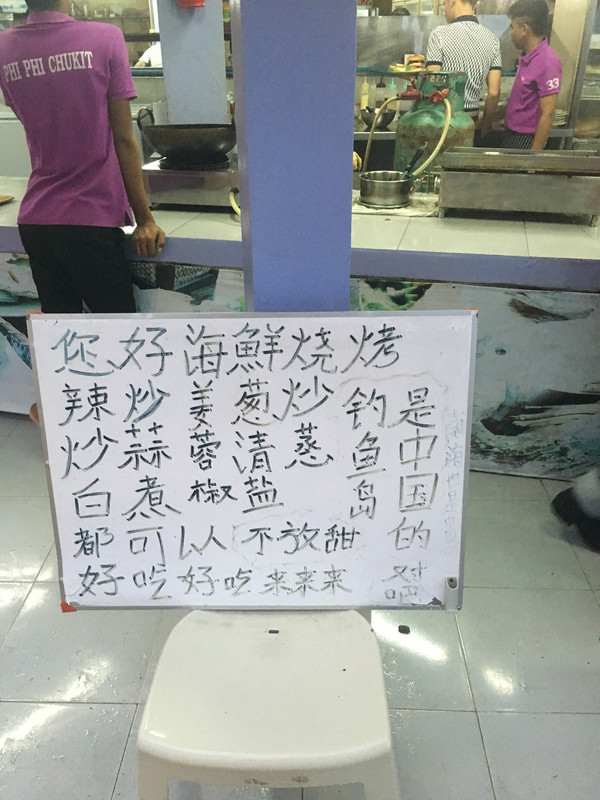 PHI PHI CHUKIT
33
您好海鮮烧烤
辣炒姜葱炒
炒蒜蓉清蒸
白煮椒盐
都可以不放甜
好吃好吃来来来
钓鱼岛
是中国的对吧